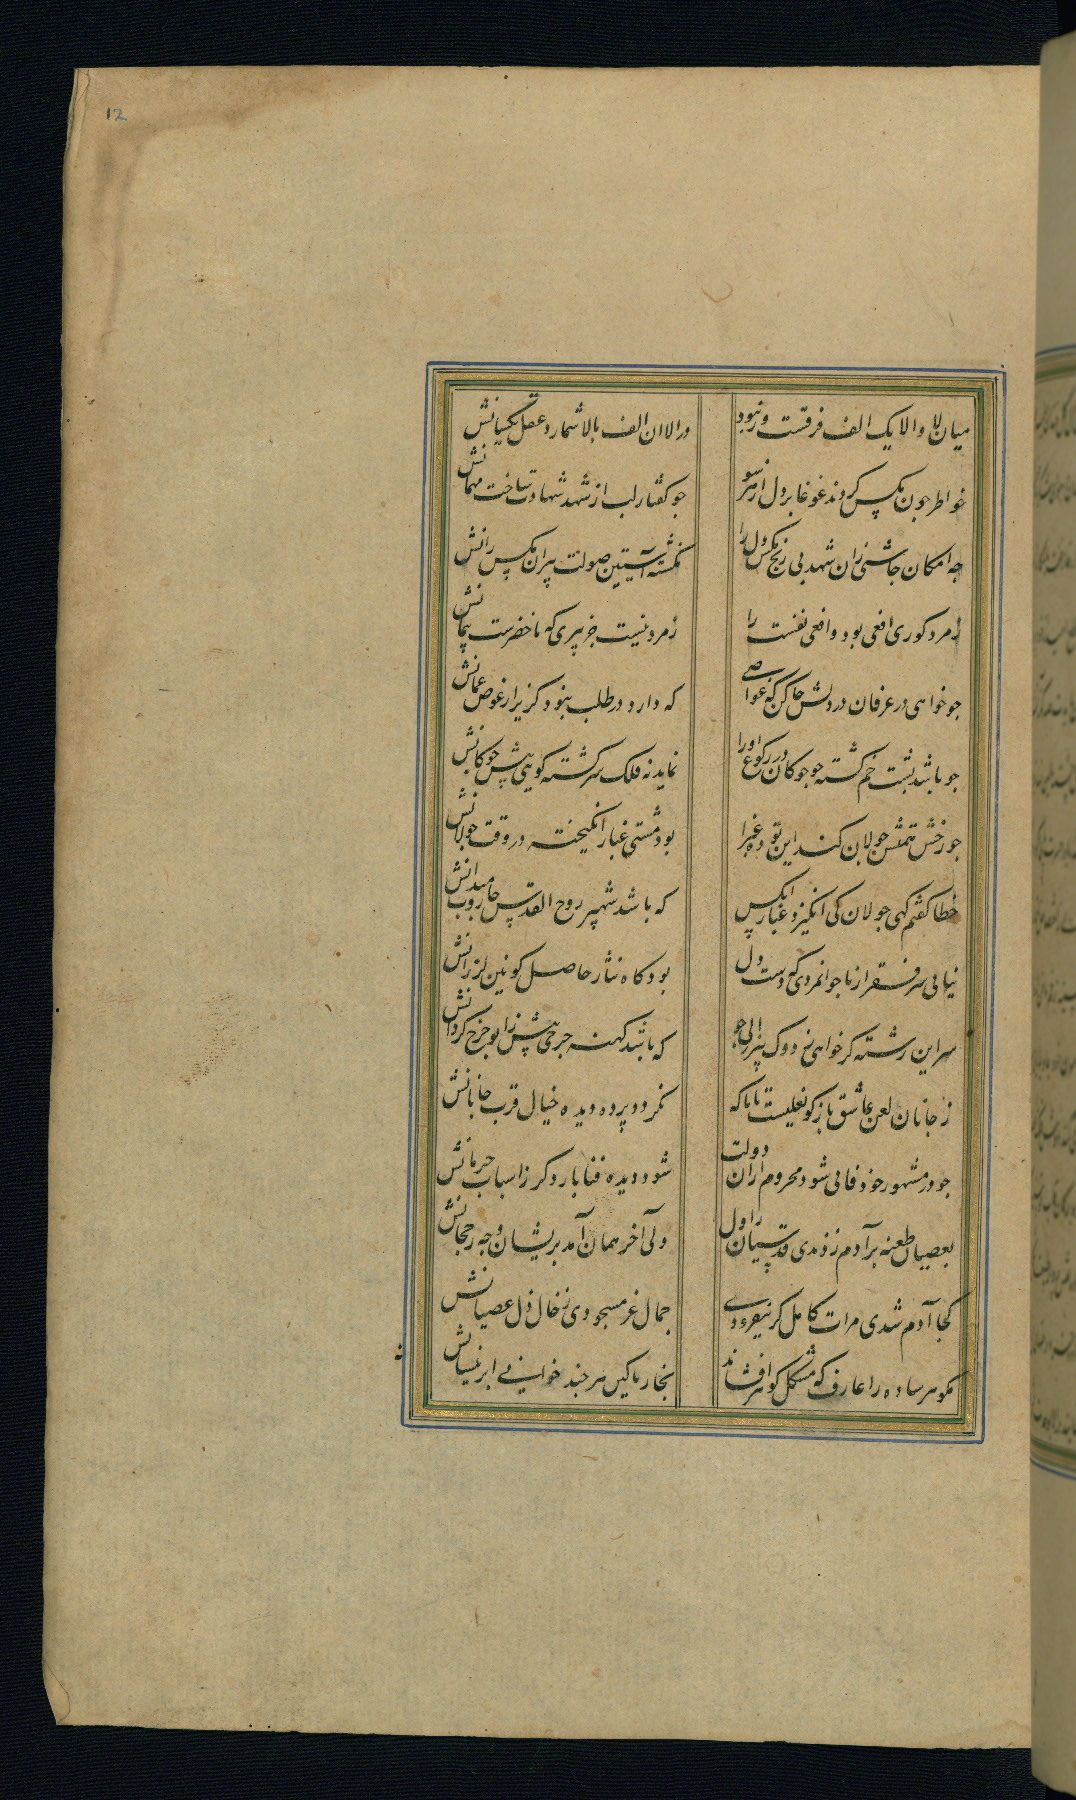 12
میان لا و الا یک الف فرقست و نبود
در الا ان الف بالا شمارد عقل یکسانش
خواطر جون مکس کردند غوغا بر دل از هر سو
جو کفتار لب از شهد شهادت ساخت مهمانش
جه امکان جاشنی زان شهد بی رنج مکس دل را
نکشته آستین صولت پیران مکس رانش
زمرد کوری افعی بود و افعی نفست را
زمرد نیست جز پیری که با خضرست پیمانش
جو خواهی در عرفان در دلش جا کن که غواصی
که دارد در طلب نبود کزیر از غوص عمانش
جو باشد پشت خم کشته جو جوکان در رکوع او را
نماید نه فلک سرکشته کویی پیش جوکانش
جو رخش همتش جولان کند این توده غبرا
بود مشتی غبار انکیخته در وقت جولانش
خطا کفتم کهی جولان کی انکیزد غبار انکس
که باشد شهپر روح القدس جاروب میدانش
نیابی سر فقر از ناجوانمردی که دست دل
بود کاه نثار حاصل کونین لرزانش
سر این رشته کر خواهی ز دوک پیر زالی جو
که باشد کهنه جرخی پیش زابو جرخ کردانش
ز جانان لعن عاشق باز کو نعلیست تا ناکه
نکردد پرده دیده خیال قرب جانانش
جو در مشهور خود فانی شود محروم از ان دولت
شود دیده فنا بار دکر ز اسباب حرمانش
بعصیان طعنه بر آدم زدندی قدسیان ز اول
ولی آخر همان آمد بریشان وجه رجحانش
کجا آدم شدی مرات کامل کر نیفزودی
جمال غر مسجودی ز خال ذل عصیانش
مکو هر ساده را عارف که مشکل کوهر افشاند
بخار ناکس هر جند خوانی ابر نیسانش